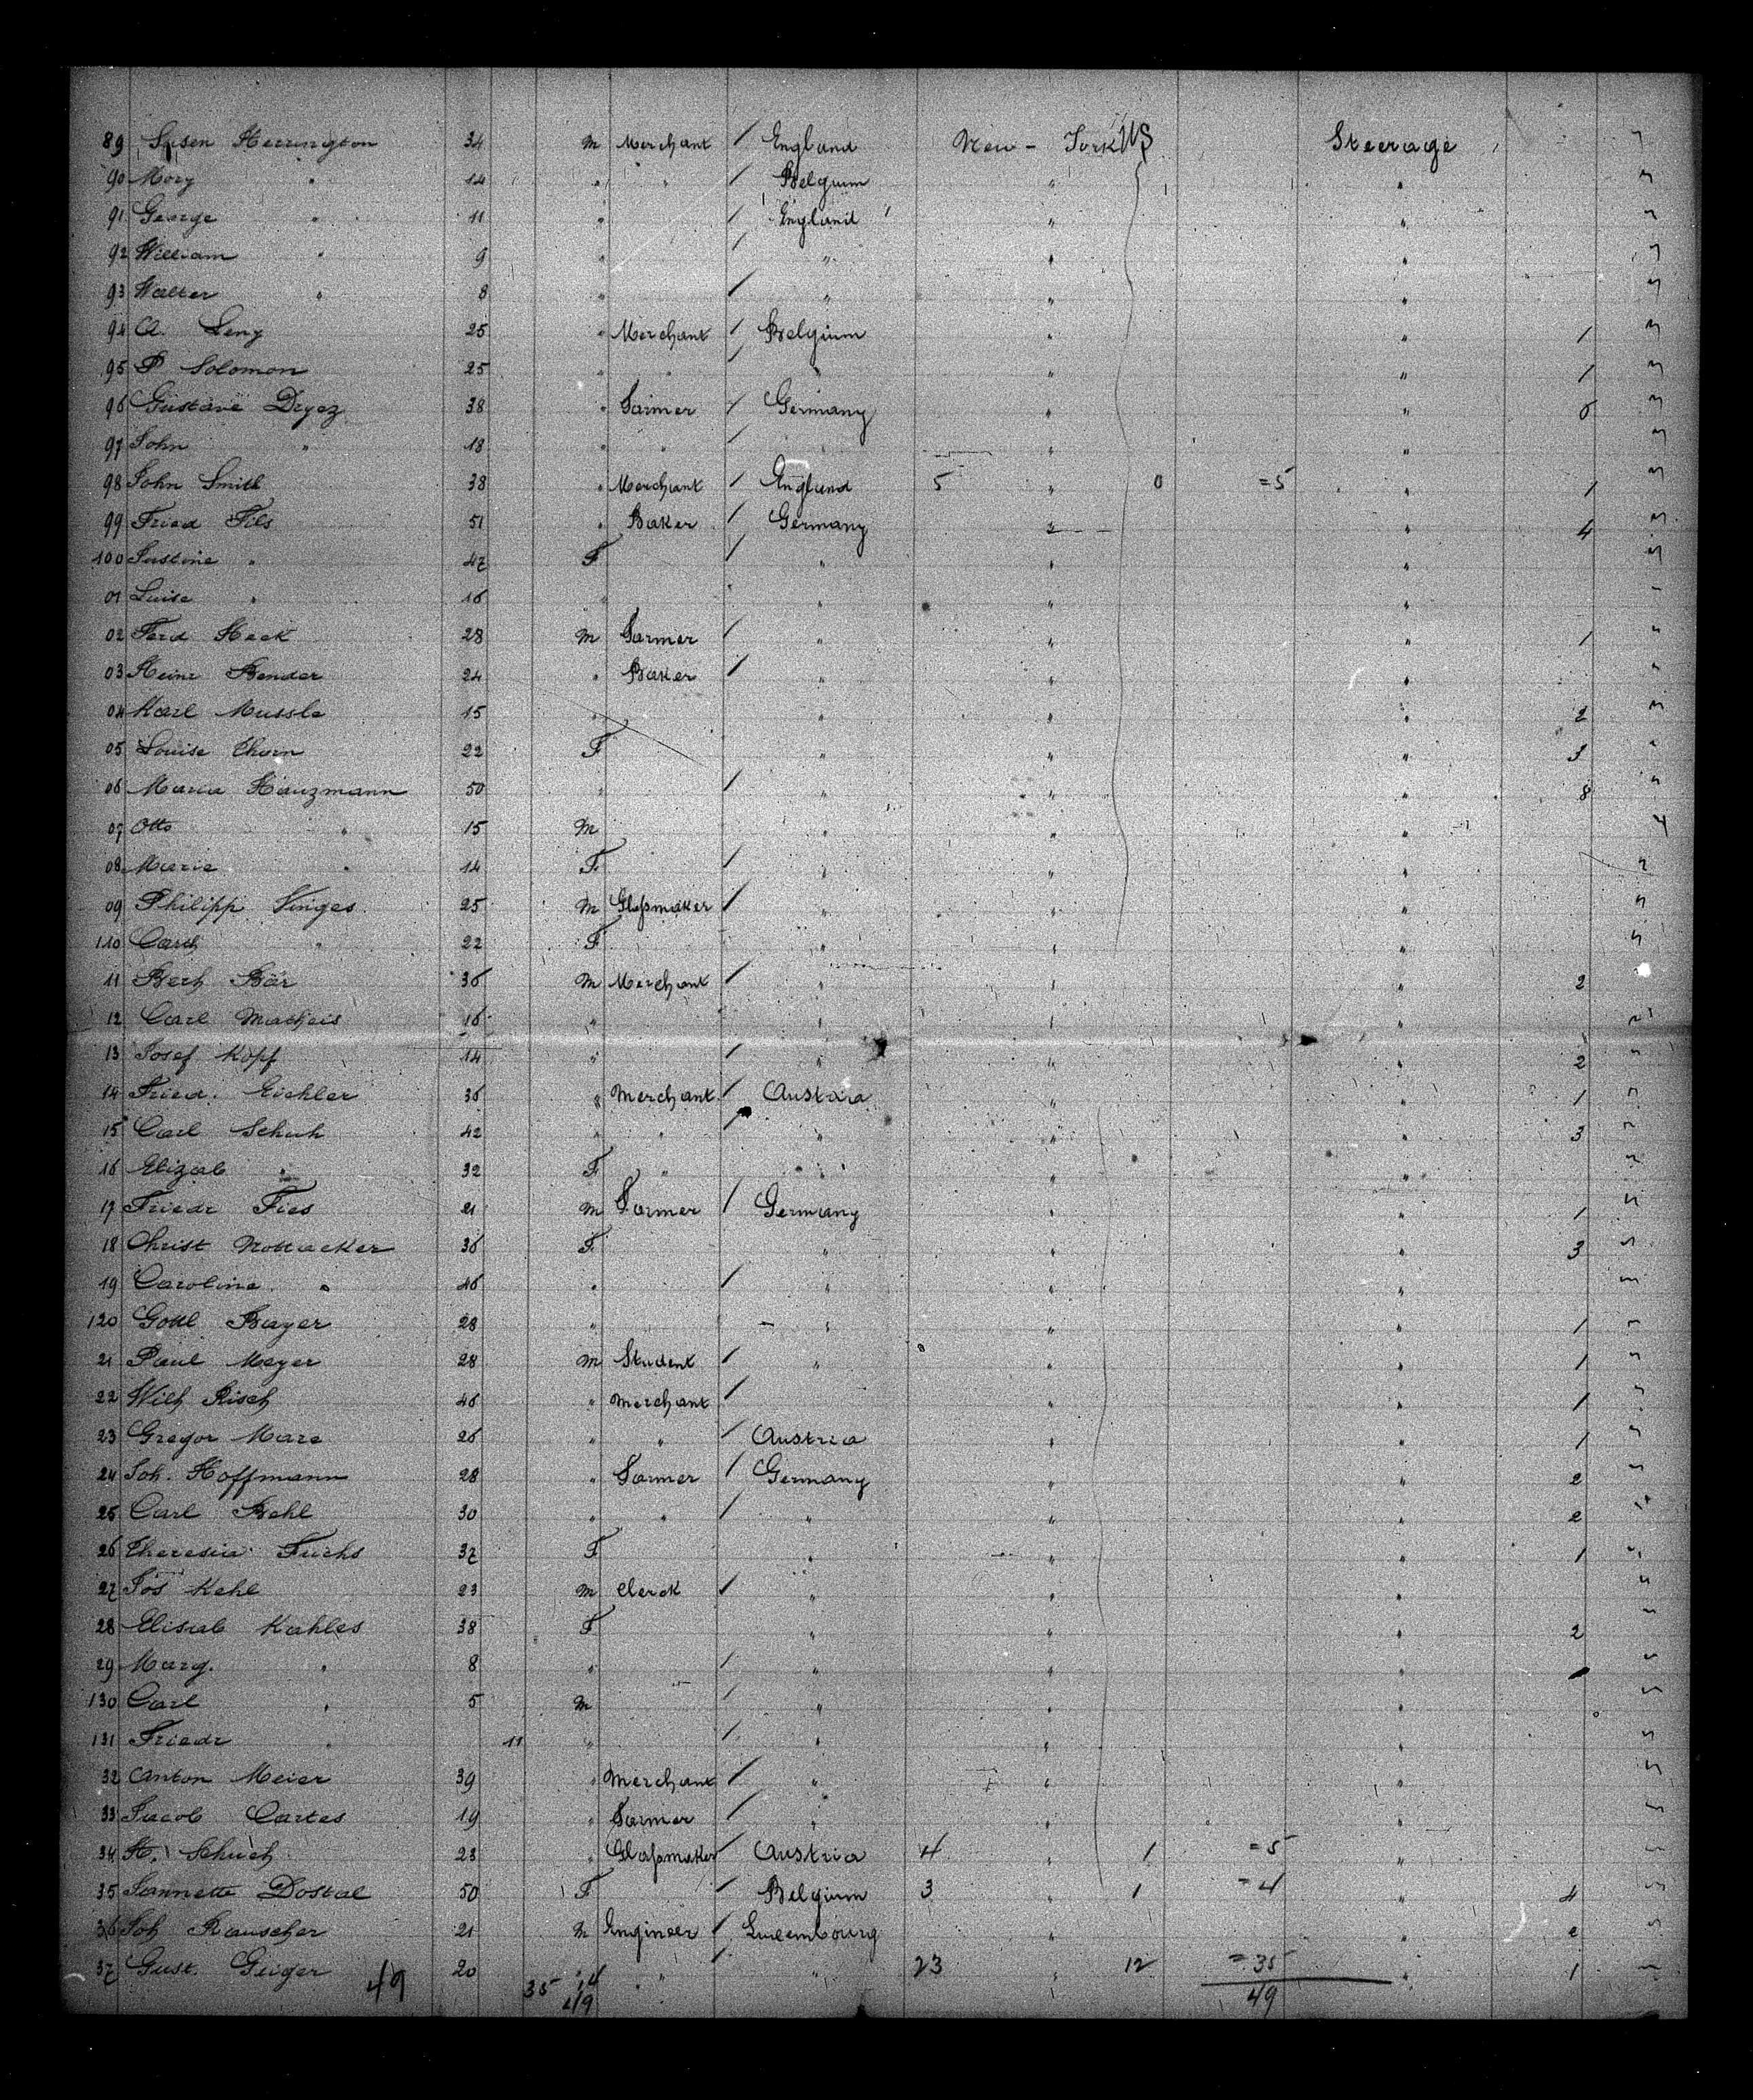 89 Susen Herrington 34 m Merchant / England New-York US Steerage
90 Mary " 14 " " / Belgium " "
91 George " 11 " / England " "
92 William " 9 " / " " "
93 Walter " 8 " / " " "
94 A. Leny 25 " Merchant / Belgium " " 1
95 P Solomon 25 " " / " " " 1
96 Gustave Dryez 38 " Farmer / Germany " " 6
97 John " 18 " " / " " "
98 John Smith 38 " Merchant / England 5 " 0 =5 " 1
99 Fried Fils 51 " Baker / Germany " " 4
100 Justine " 47 F / " " "
01 Luise " 16 " " " "
02 Ferd Heck 28 m Farmer / " " " 1
03 Heinr Bender 24 " Baker / " " "
04 Karl Mussle 15 " " " " 2
05 Louise Thorn 22 F " " " 3
06 Maria Hauzmann 50 " / " " " 8
07 Otto " 15 m " " "
08 Marie " 14 F / " " "
09 Philipp Vinges 25 m Glassmaker / " " "
110 " 22 F " " "
11 Bär 36 m Merchant / " " " 2
12 Carl Matheis 16 " " " "
13 Josef Kopf 14 " / " " " 2
14 Fried. Eichler 36 " Merchant / Austria " " 1
15 Carl Schuh 42 " " " " " 3
16 Elizab " 32 F " " " "
17 Friedr Fies 21 m Farmer / Germany " " 1
18 Christ Nottacker 36 F " " " 3
19 Caroline " 46 " / " " "
120 Gottl Bayer 28 " " " " 1
21 Paul Meyer 28 m Student / " " " 1
22 Wilh Risch 46 " Merchant / " " 1
23 Gregor Mare 26 " " / Austria " " 1
24 Joh. Hoffmann 28 " Farmer / Germany " " 2
25 Carl Behl 30 " " / " " " 2
26 Theresia Fuchs 37 F " " " 1
27 Jos Kehl 23 m Clerck / " " "
28 Elisab Kahles 38 F " " " 2
29 Marg. " 8 " / " " "
130 Carl " 5 m / " " "
131 Friedr " 11 " / " " "
32 Anton Meier 39 " Merchant / " " "
33 Jacob Cartes 19 " Farmer / " " "
34 H. Schuch 23 " Glassmaker / Austria 4 " 1 =5 "
35 Jannette Dostal 50 F / Belgium 3 " 1 =4 " 4
36 Joh Rauscher 21 m Engineer / Luxembourg " " 2
37 Gust. Geiger 20 " " / " 23 " 12 =35 " 1
49 35 14 49 49